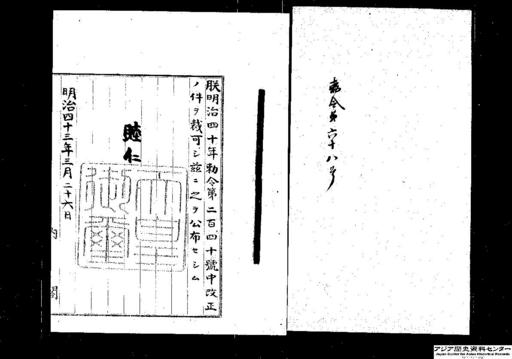 勅令第六十八号
朕明治四十年勅令第二百四十號中改正
ノ件ヲ裁可シ茲ニ之ヲ公布セシム
睦仁
天皇御璽
明治四十三年三月二十六日
内閣
アジア歴史資料センター
Japan Center for Asian Historical Records